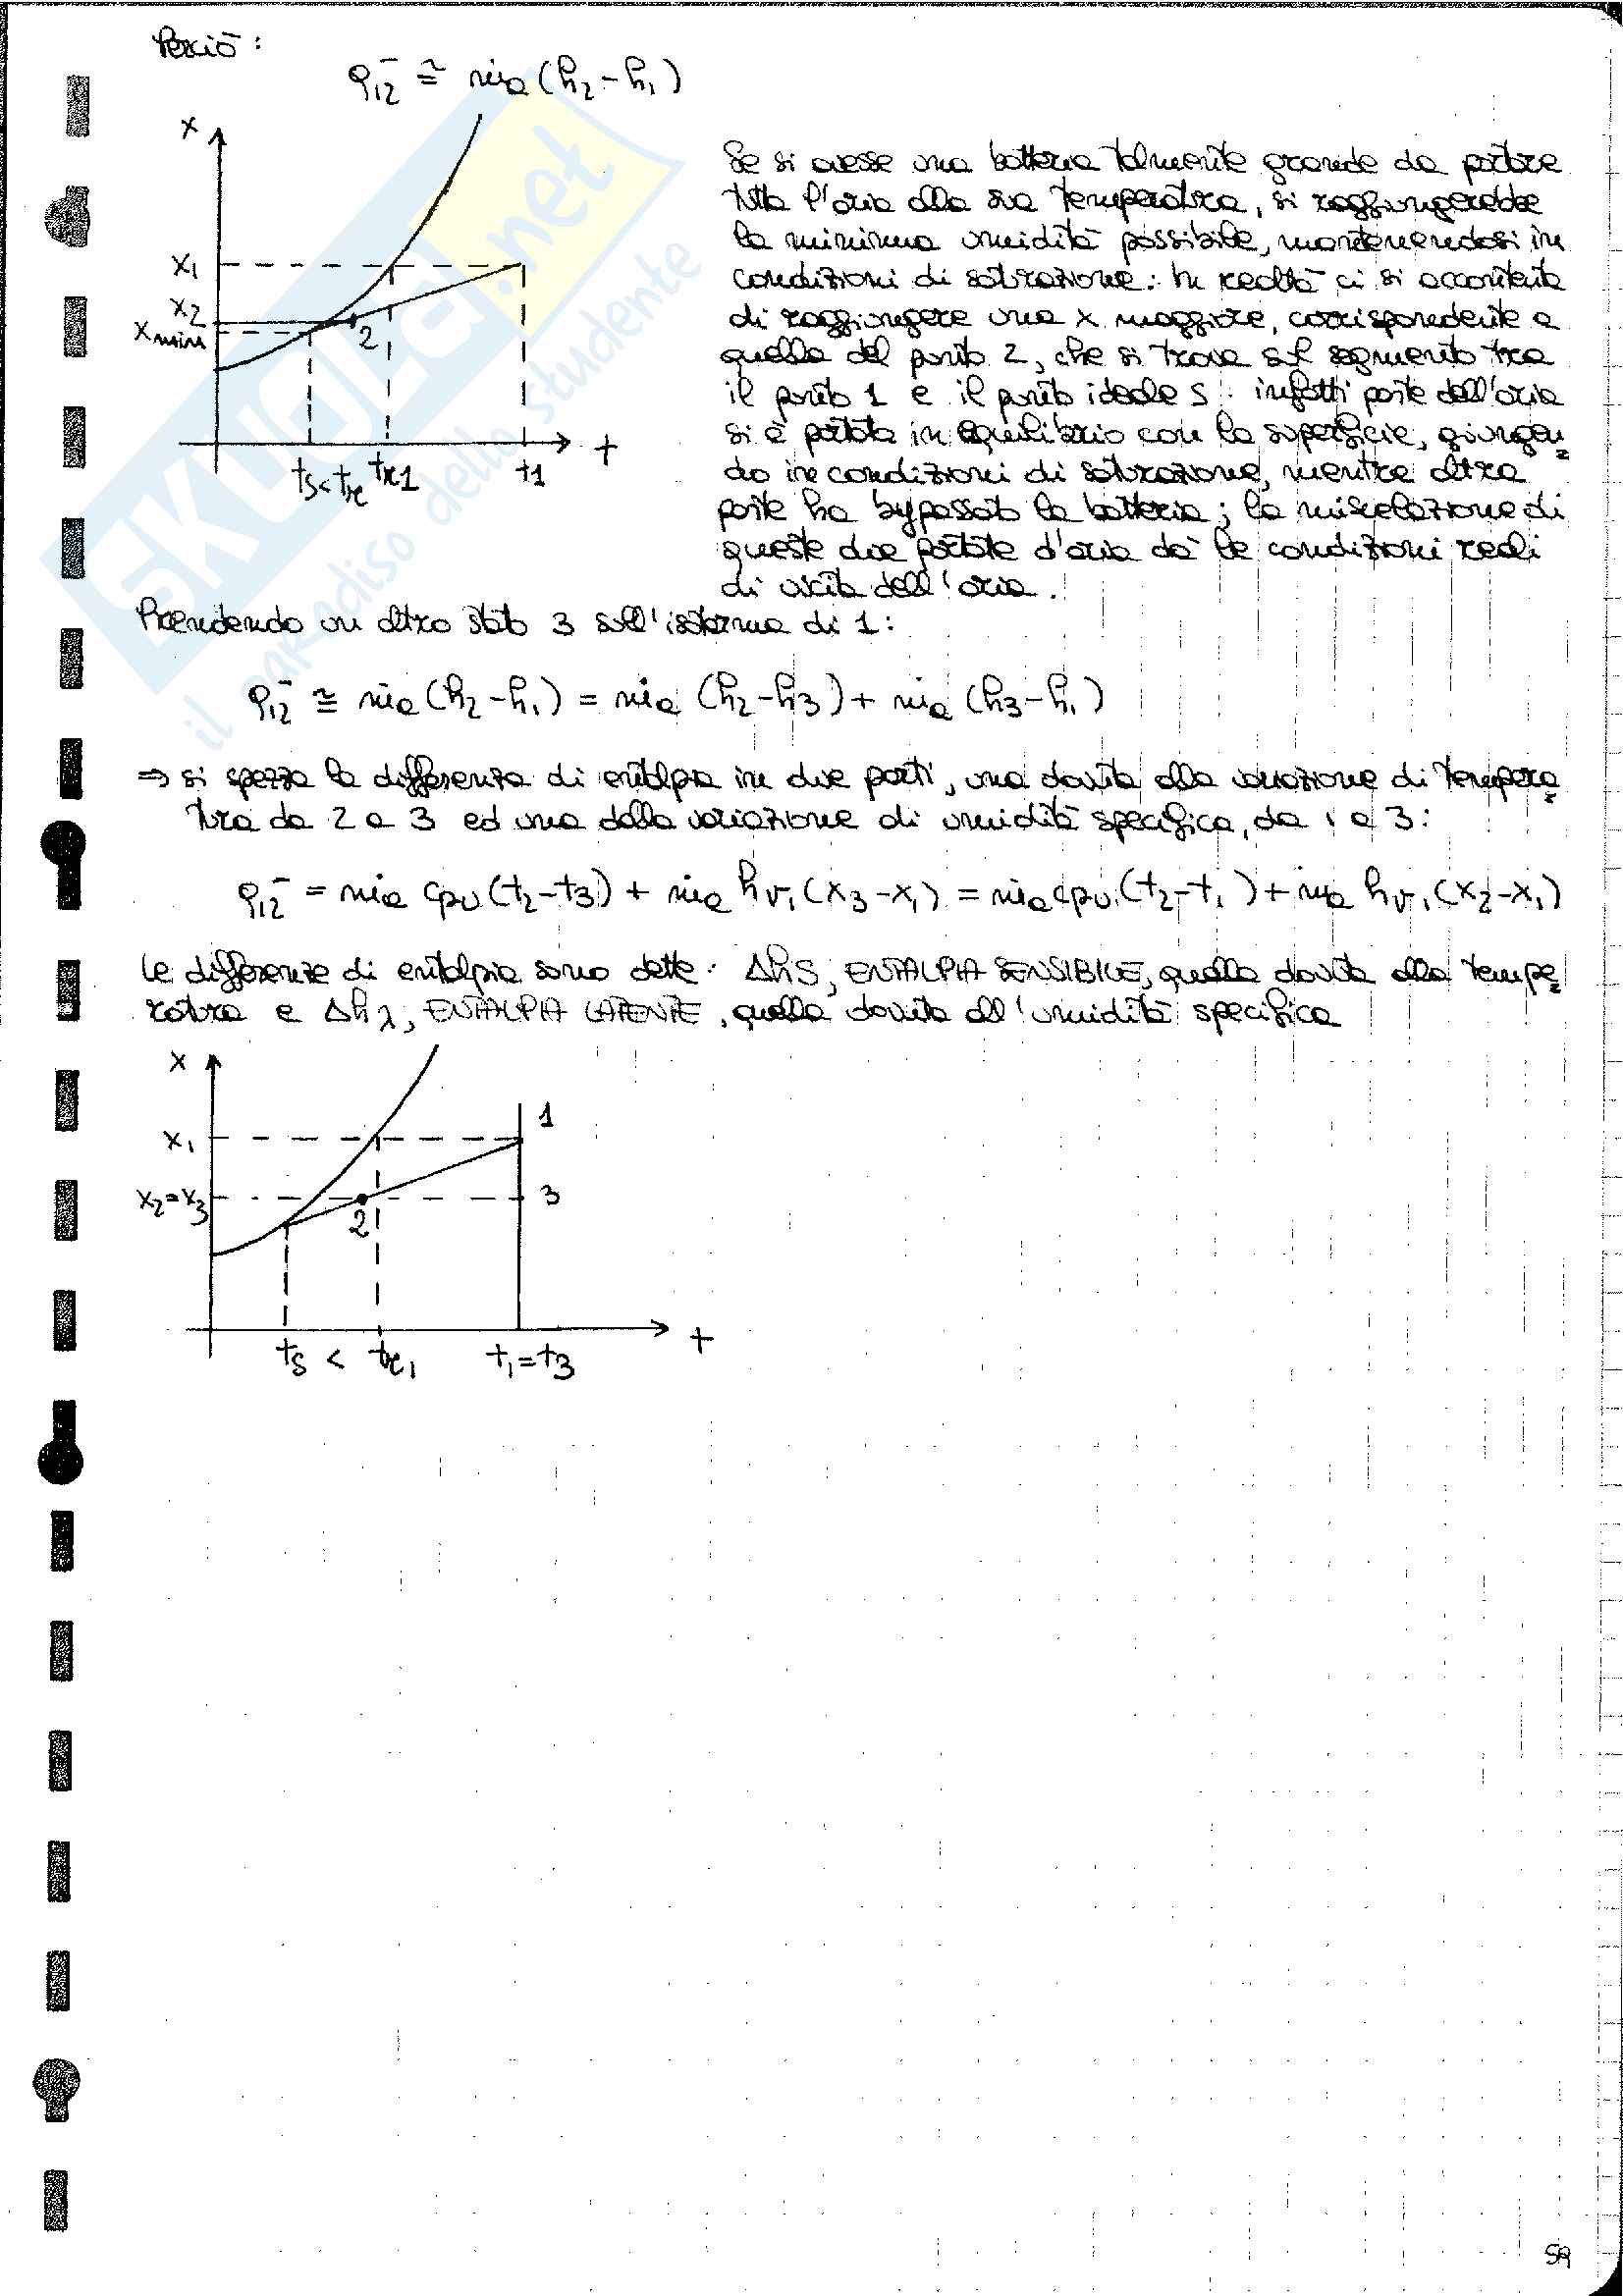 Perciò:
q12⁻ ≅ ṁa (h2 - h1)
x
x1
x2
xmin
2
ts < tr tr1 t1
t
Se si avesse una batteria talmente grande da portare
tutta l'aria alla sua temperatura, si raggiungerebbe
la minima umidità possibile, mantenendosi in
condizioni di saturazione. In realtà ci si accontenta
di raggiungere una x maggiore, corrispondente a
quella del punto 2, che si trova sul segmento tra
il punto 1 e il punto ideale S: infatti parte dell'aria
si è portata in equilibrio con la superficie, giungen
do in condizioni di saturazione, mentre altra
parte ha bypassato la batteria; la miscelazione di
queste due portate d'aria dà le condizioni reali
di uscita dell'aria.
Prendendo un altro stato 3 sull'isoterma di 1:
q12⁻ ≅ ṁa (h2 - h1) = ṁa (h2 - h3) + ṁa (h3 - h1)
⇒ si spezza la differenza di entalpia in due parti, una dovuta alla variazione di tempera
tura da 2 a 3 ed una dalla variazione di umidità specifica, da 1 a 3:
q12⁻ = ṁa cpu (t2 - t3) + ṁa hv1 (x3 - x1) = ṁa cpu (t2 - t1) + ṁa hv1 (x2 - x1)
Le differenze di entalpia sono dette: ΔhS, ENTALPIA SENSIBILE, quella dovuta alla tempe
ratura e Δhλ, ENTALPIA LATENTE, quella dovuta all'umidità specifica
x
x1
1
x2=x3
3
2
ts < tr1 t1=t3
t
59
SKUOLA.net
il paradiso dello studente